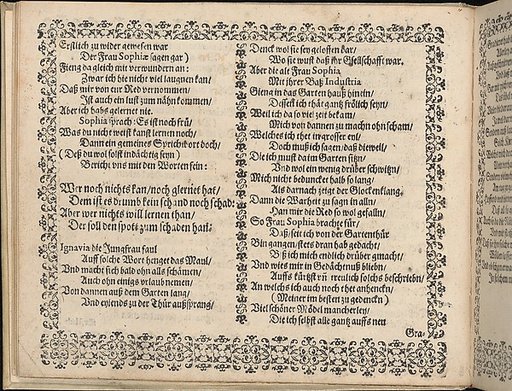 Erstlich zu wider gewesen war
Der Frau Sophiæ sagen gar)
Fieng da gleich mit verwundern an:
Zwar ich hie nicht viel laugnen kan/
Daß mir von eur Red vernommen/
Ist auch ein lust zum nähn kommen/
Aber ich habs gelernet nie.
Sophia sprach: Es ist noch frü/
Was du nicht weist kanst lernen noch/
Dann ein gemeines Sprichwort doch/
(Deß du wol solst indächtig seyn)
Bericht uns mit den Worten fein:
Wer noch nichts kan/ noch glernet hat/
Dem ist es drumb kein schand noch schad:
Aber wer nichts will lernen than/
Der soll den spott zum schaden han.
Ignavia die Jungfrau faul
Auff solche Wort henget das Maul/
Und macht sich bald ohn alls schämen/
Auch ohn einigs urlaub nemen/
Von dannen auß dem Garten lang/
Und eylends zu der Thür außsprang/
Denck wol sie sey geloffen dar/
Wo sie wust daß ihr Gsellschaft war.
Aber die alt Frau Sophia
Mit ihrer Baß Industria
Gieng in das Garten hauß hinein/
Desselb ich thät gantz frölich seyn/
Weil ich da so viel zeit bekam/
Mich von dannen zu machn ohn scham/
Welches ich thet in grosser eyl/
Doch muß ich sagen/ daß dieweil/
Die ich must da im Garten sitzn/
Und wol ein wenig drüber schwitzn/
Mich nicht beduncket halb so lang/
Als darnach zeigt der Glockenklang.
Dann die Warheit zu sagn in alln/
Han mir die Red so wol gefalln/
So Frau Sophia brachte für/
Daß/ seit ich von der Gartenthür
Bin gangen/ stets dran hab gedacht/
Biß ich mich endlich drüber gmacht/
Und wies mir in Gedächtnuß bliebn/
Auffs kürtzt für neulich solchs beschriebn/
An welchs ich auch noch thet anhencken/
(Meiner im besten zu gedencken)
Viel schöner Mödel mancherley/
Die ich selbst alle gantz auffs neu
Gra-